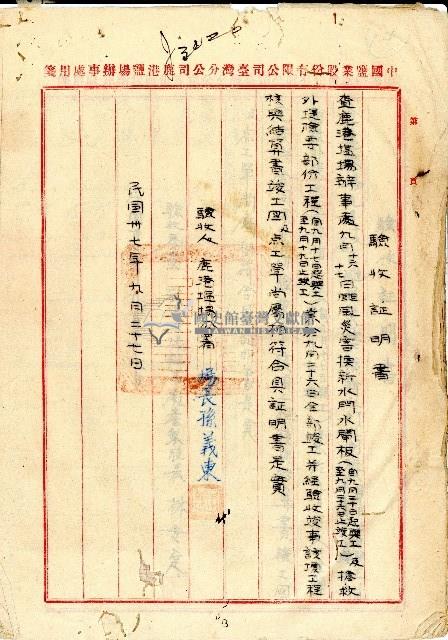 中國鹽業股份有限公司臺灣分公司鹿港鹽場辦事處用箋
第 頁
驗收証明書
查鹿港塩場辦事處九月十六十七日颱風災害換新水門水閘板(自九月二十日起興工至九月二十六日止竣工)及搶救
外堤險要部份工程(自九月十七日起興工至九月十九日止竣工)業於九月二十六日全部竣工并經驗收竣事該項工程
核與結算書竣工圖及点工單尚屬相符合具証明書是實
驗收人 鹿港塩場公署 場長孫義東
民国卅七年九月二十七日
國史館臺灣文獻館
TAIWAN HISTORICA